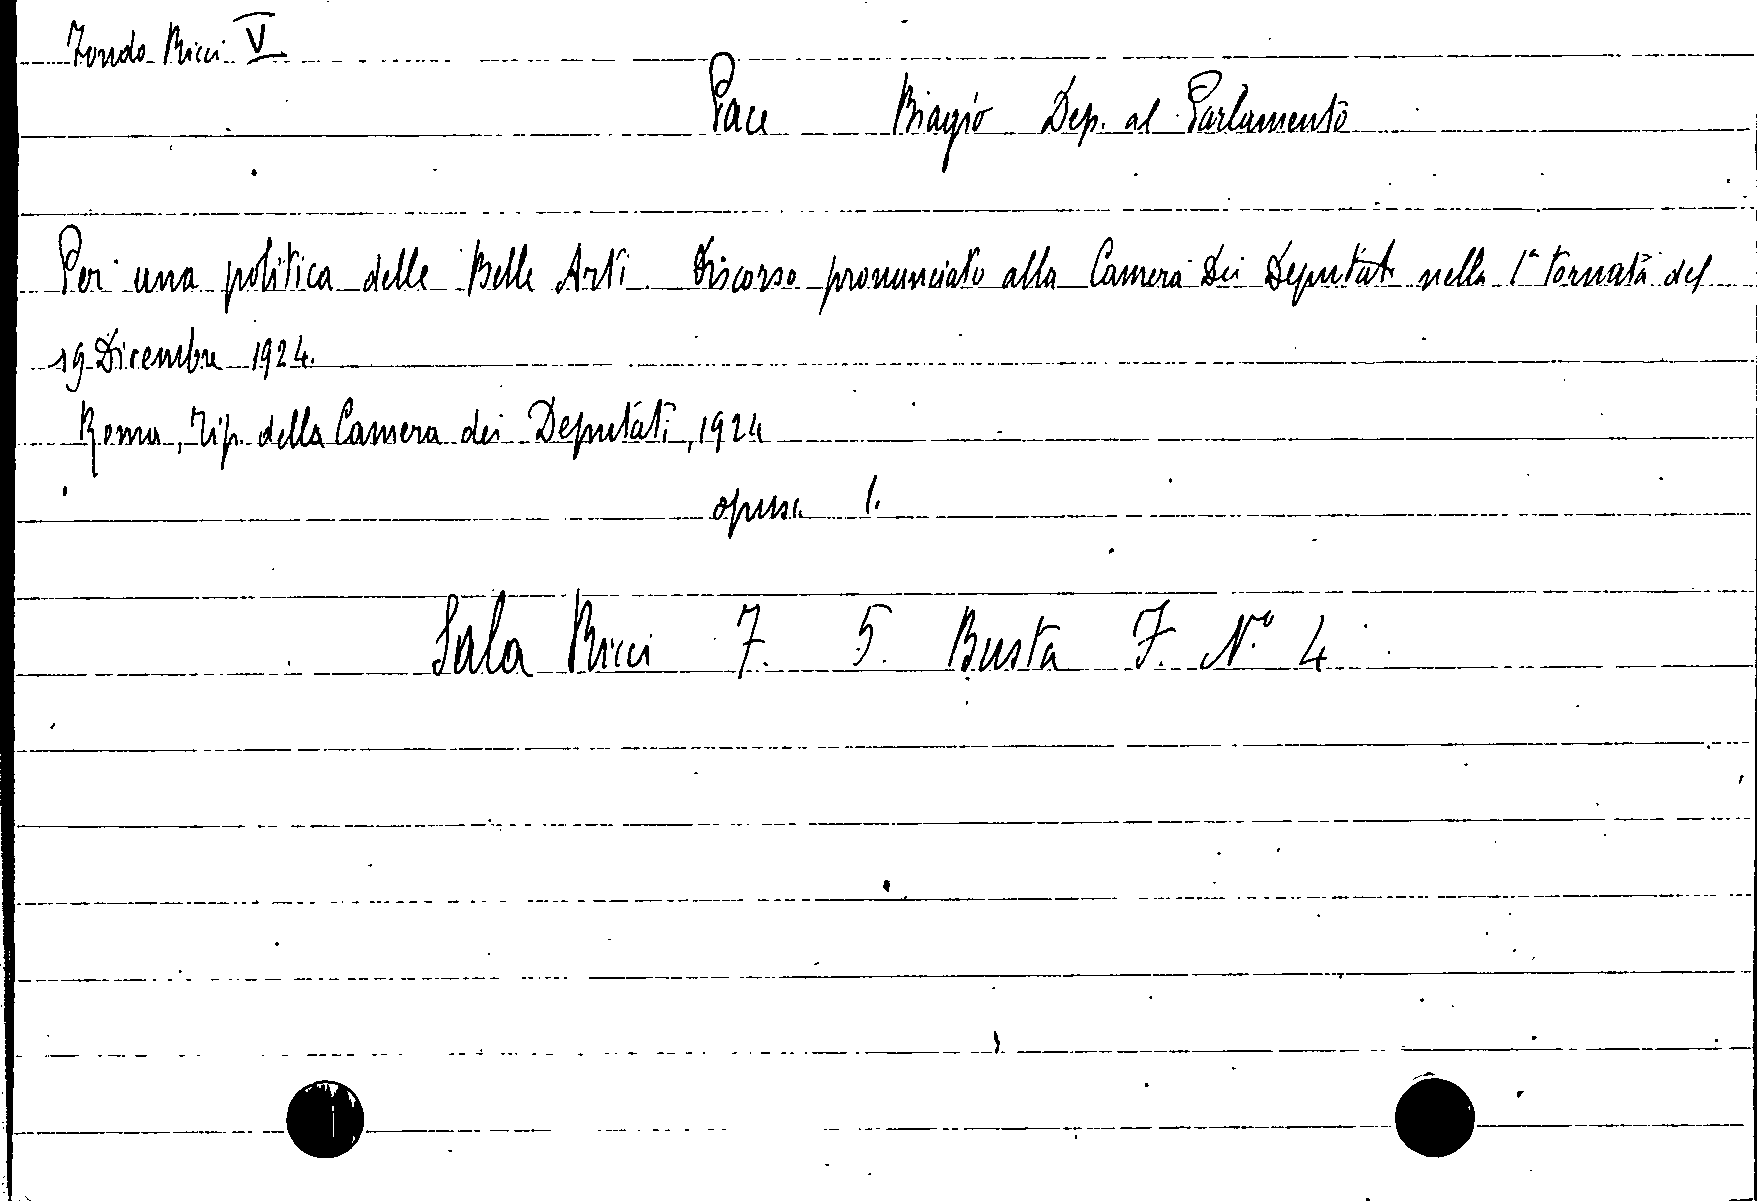 Fondo Ricci V
Pace Biagio Dep. al Parlamento
Per una politica delle Belle Arti. Discorso pronunciato alla Camera Dei Deputati nella 1ª tornata del
19 Dicembre 1924.
Roma, Tip. della Camera dei Deputati, 1924
opusc. 1.
Sala Ricci 7. 5. Busta F. N.º 4